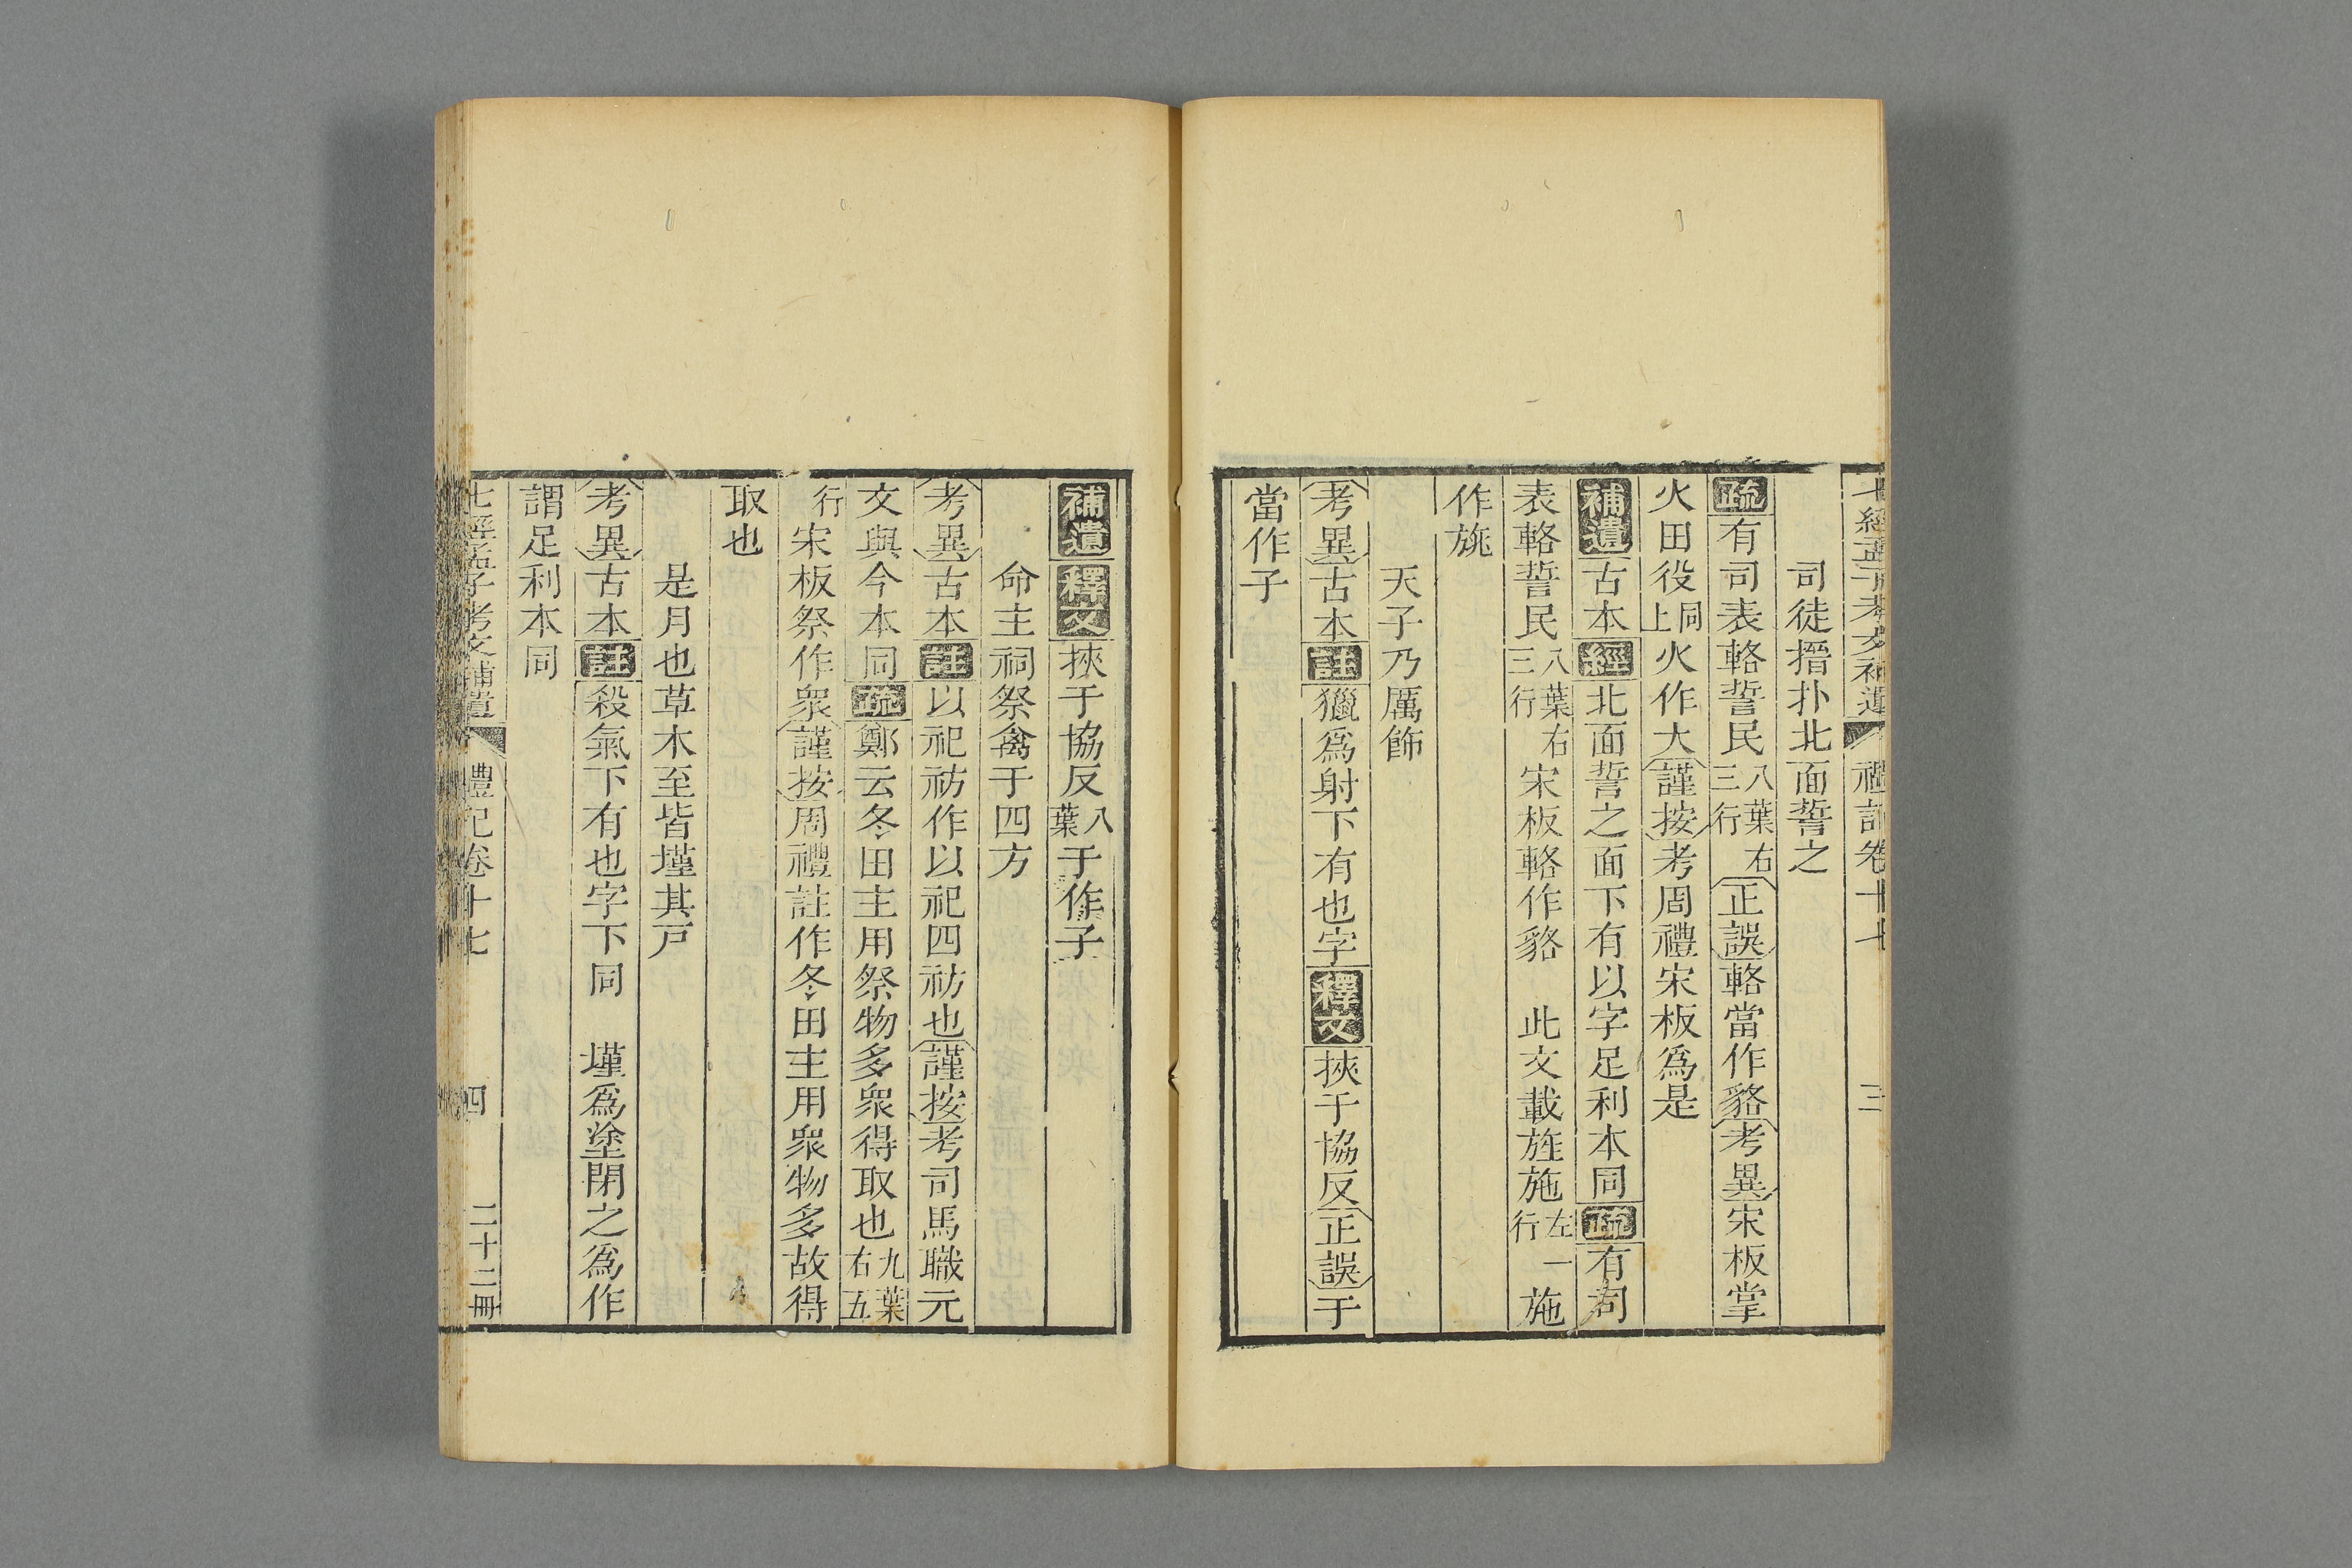 七經孟子考文補遺 禮記卷十七 三
司徒搢扑北面誓之
疏有司表貉誓民八葉右三行正誤輅當作貉考異宋板掌
火田役同上火作大謹按考周禮宋板爲是
補遺古本經北面誓之面下有以字足利本同疏有司
表輅誓民八葉右三行宋板輅作貉 此文載旌施左一行施
作旐
天子乃厲飾
考異古本註獵爲射下有也字釋文挾于協反正誤于
當作子
補遺釋文挾于協反八葉于作子
命主祠祭禽于四方
考異古本註以祀祊作以祀四祊也謹按考司馬職元
文與今本同疏鄭云冬田主用祭物多衆得取也九葉右五
行宋板祭作衆謹按周禮註作冬田主用衆物多故得
取也
是月也草木至皆墐其戸
考異古本註殺氣下有也字下同 墐爲塗閉之爲作
謂足利本同
七經孟子考文補遺 禮記卷十七 四 二十二冊